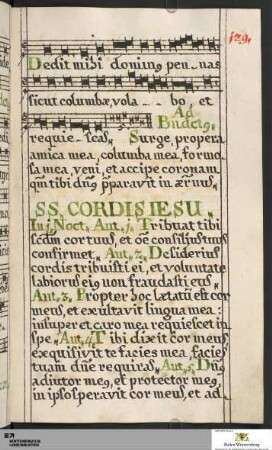 Dedit mihi dominus pennas
sicut columbæ, vola - - bo, et
Ad
Bndcts,
requie - scas, Surge, propera
amica mea, columba mea, formo-
sa mea, veni, et accipe coronam
qm tibi dns pparavit in æternus,
SS. CORDIS IESU,
In j, Noct, Ant, j, Tribuat tibi
scdm cor tuus, et oe consilius tuus
confirmet, Ant, 2, Desiderius
cordis tribuisti ei, et voluntate
labiorus eig non fraudasti eus,
Ant, 3, Propter hoc lætatus est cor
meus, et exultavit lingua mea:
insuper et caro mea requiescet in
spe, Ant, 4, Tibi dixit cor meus
exquisivit te facies mea, facies
tuam dne requiras, Ant, 5, Dns
adiutor meg, et protector meg,
in ipso speravit cor meus, et ad-